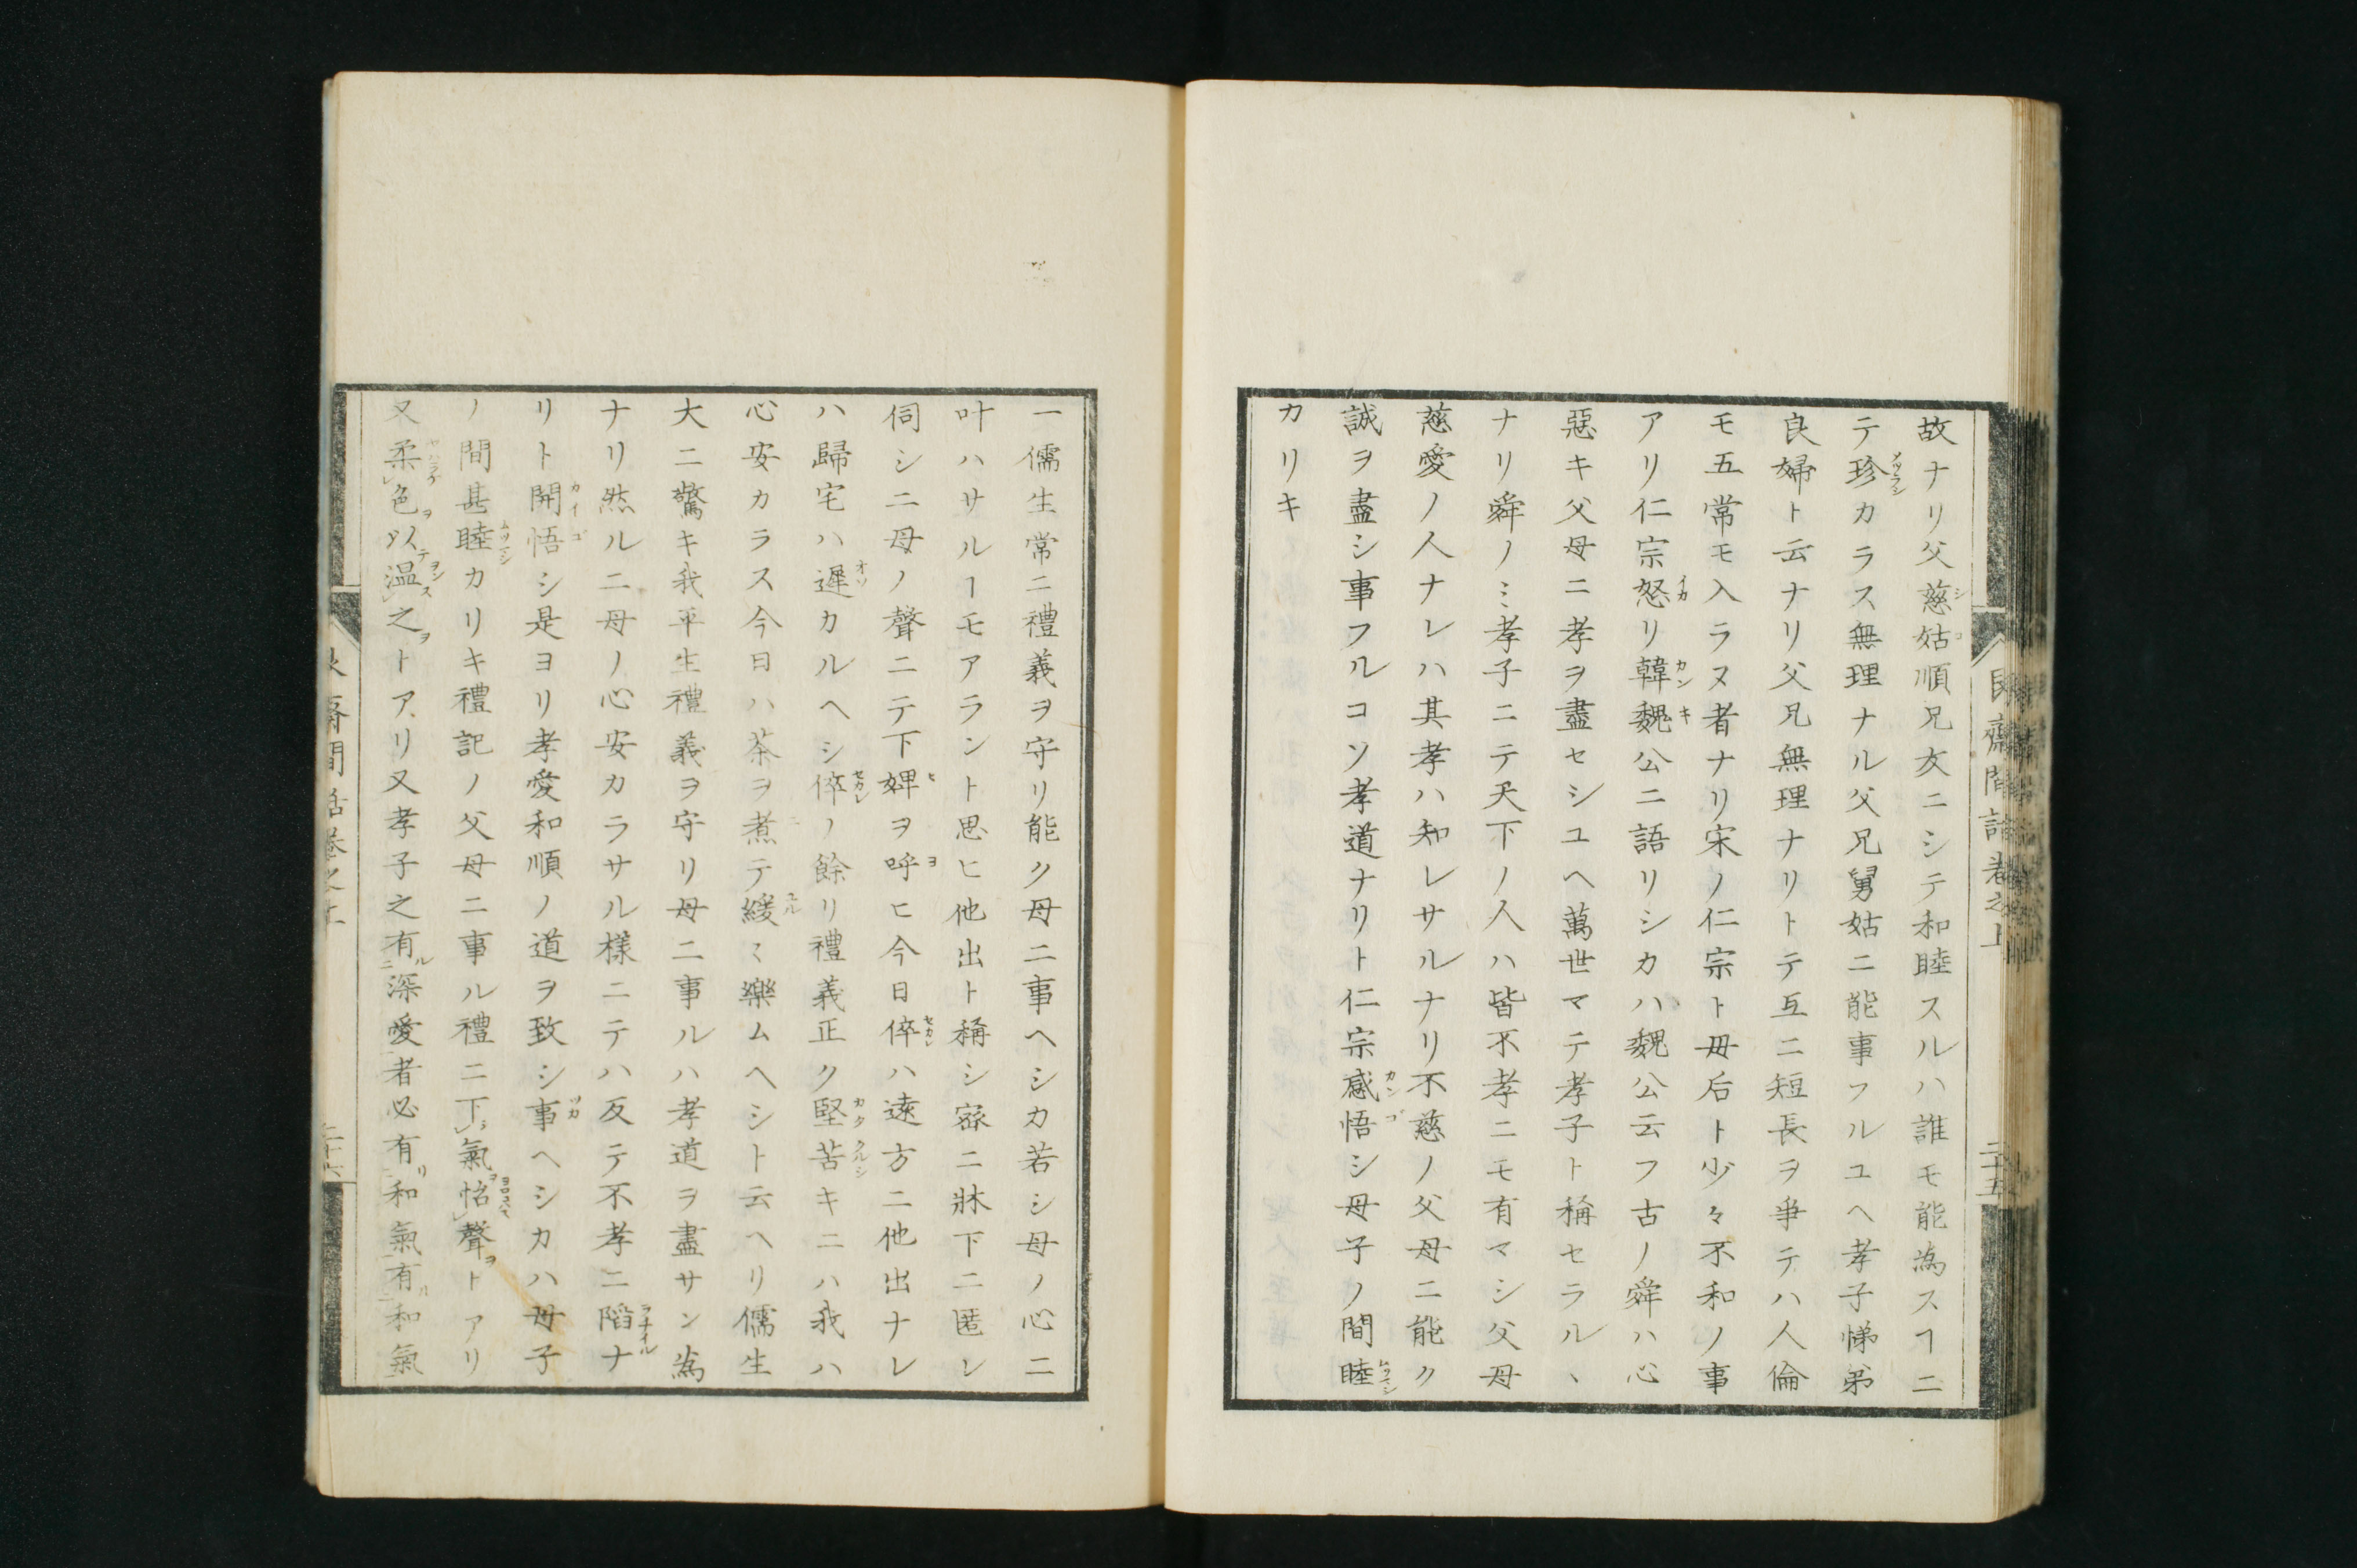 故ナリ父慈姑順兄友ニシテ和睦スルハ誰モ能為スヿニ
テ珍カラス無理ナル父兄舅姑ニ能事フルユヘ孝子悌弟
良婦ト云ナリ父兄無理ナリトテ互ニ短長ヲ爭テハ人倫
モ五常モ入ラヌ者ナリ宋ノ仁宗ト毋后ト少々不和ノ事
アリ仁宗怒リ韓魏公ニ語リシカハ魏公云フ古ノ舜ハ心
惡キ父母ニ孝ヲ盡セシユヘ萬世マテ孝子ト稱セラルヽ
ナリ舜ノミ孝子ニテ天下ノ人ハ皆不孝ニモ有マシ父母
慈愛ノ人ナレハ其孝ハ知レサルナリ不慈ノ父母ニ能ク
誠ヲ盡シ事フルコソ孝道ナリト仁宗感悟シ母子ノ間睦
カリキ
齋間話卷之上
二十五
一儒生常ニ禮義ヲ守リ能ク母ニ事ヘシカ若シ母ノ心ニ
叶ハサルヿモアラント思ヒ他出ト稱シ宻ニ牀下ニ匿レ
伺シニ母ノ聲ニテ下婢ヲ呼ヒ今日倅ハ遠方ニ他出ナレ
ハ歸宅ハ遲カルヘシ倅ノ餘リ禮義正ク堅苦キニハ我ハ
心安カラス今日ハ茶ヲ煮テ緩ミ樂ムヘシト云ヘリ儒生
大ニ驚キ我平生禮義ヲ守リ母ニ事ルハ孝道ヲ盡サン為
ナリ然ルニ母ノ心安カラサル樣ニテハ反テ不孝ニ陷ナ
リト開悟シ是ヨリ孝愛和順ノ道ヲ致シ事ヘシカハ母子
ノ間甚睦カリキ禮記ノ父母ニ事ル禮ニ下氣怡聲トアリ
又柔色以温之トアリ又孝子之有深愛者必有和氣有和氣
齋間話卷之上
二十六